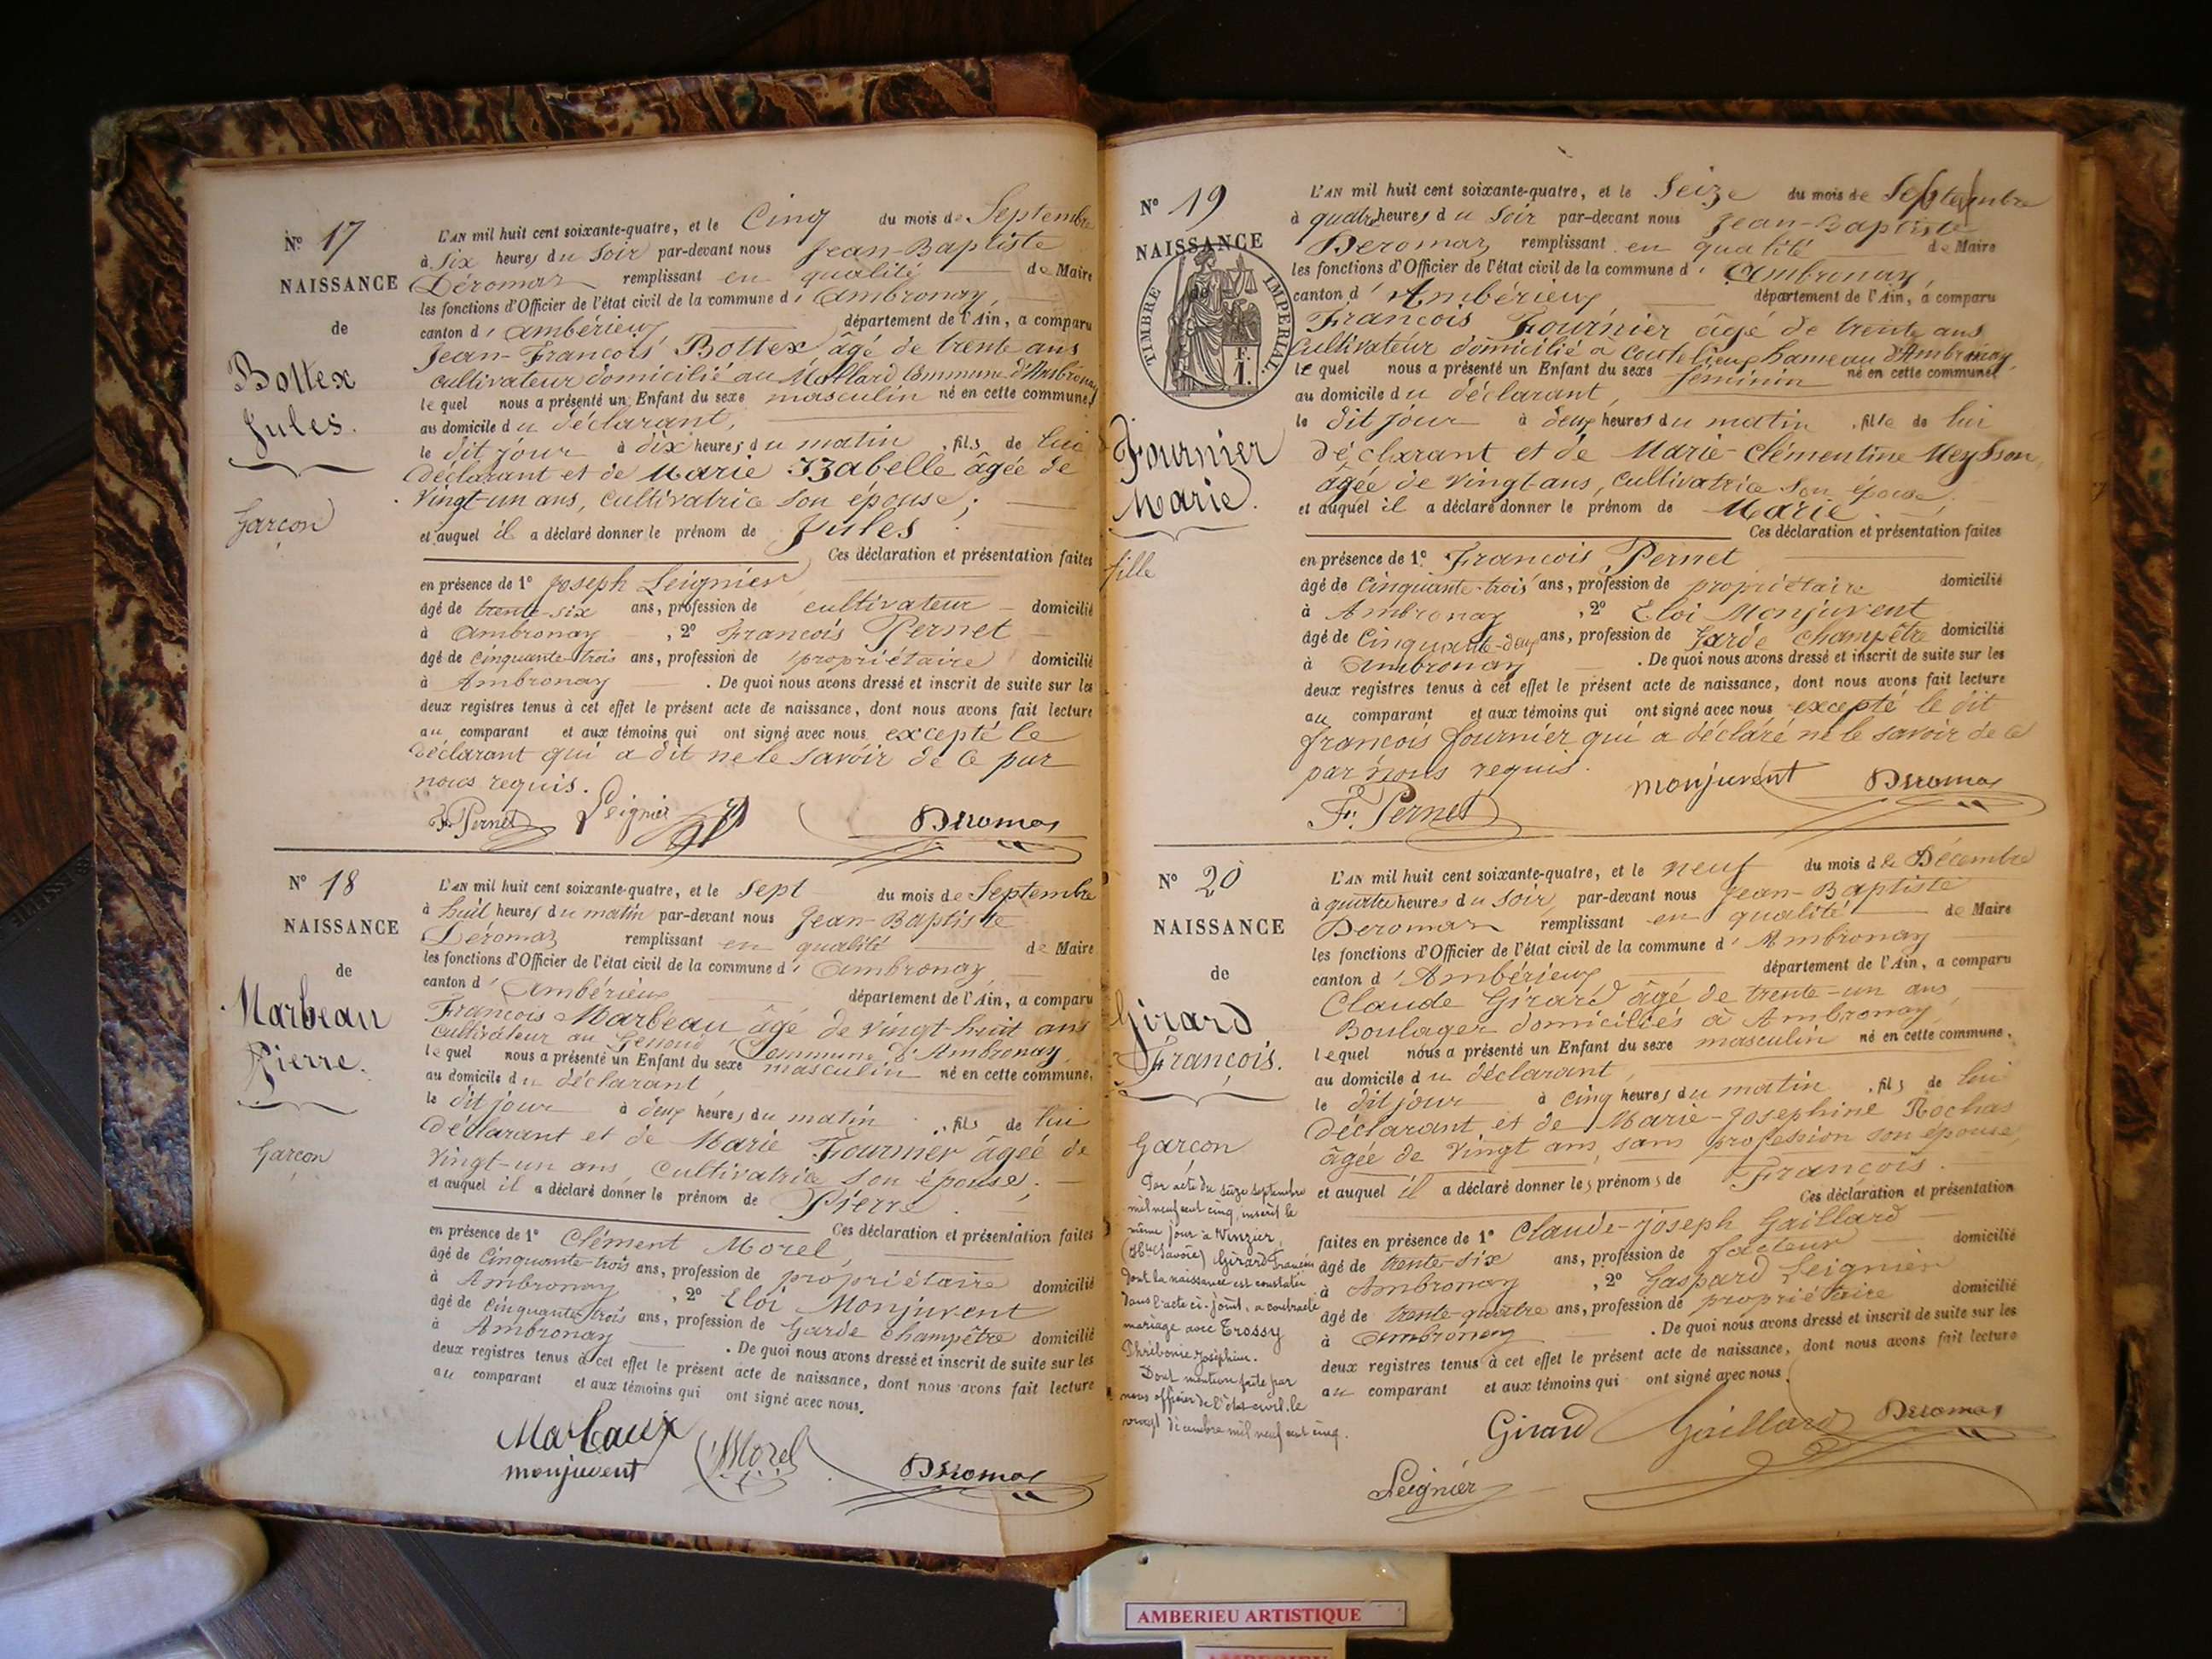 N° 17
NAISSANCE
de
Bottex
Jules.
Garçon
L'AN mil huit cent soixante-quatre, et le Cinq du mois de Septembre
à Six heures du Soir par-devant nous Jean-Baptiste
Déromas remplissant en qualité de Maire
les fonctions d'Officier de l'état civil de la commune d'Ambronay,
canton d'Ambérieux département de l'Ain, a comparu
Jean-François Bottex âgé de trente ans
cultivateur domicilié au Mollard Commune d'Ambronay
lequel nous a présenté un Enfant du sexe masculin né en cette commune,
au domicile du déclarant,
le dit jour à dix heures du matin, fils de lui
déclarant et de Marie Izabelle âgée de
vingt-un ans, cultivatrice son épouse;
et auquel il a déclaré donner le prénom de Jules
Ces déclaration et présentation faites
en présence de 1° Joseph Leignier
âgé de trente-six ans, profession de cultivateur domicilié
à Ambronay, 2° François Pernet
âgé de Cinquante-trois ans, profession de propriétaire domicilié
à Ambronay. De quoi nous avons dressé et inscrit de suite sur les
deux registres tenus à cet effet le présent acte de naissance, dont nous avons fait lecture
au comparant et aux témoins qui ont signé avec nous excepté le
déclarant qui a dit ne le savoir de ce par
nous requis.
F. Pernet Leignier Deromas
N° 18
NAISSANCE
de
Marbeau
Pierre.
Garçon
L'AN mil huit cent soixante-quatre, et le Sept du mois de Septembre
à huit heures du matin par-devant nous Jean-Baptiste
Déromas remplissant en qualité de Maire
les fonctions d'Officier de l'état civil de la commune d'Ambronay
canton d'Ambérieux département de l'Ain, a comparu
François Marbeau âgé de vingt-huit ans
Cultivateur au Commune d'Ambronay,
lequel nous a présenté un Enfant du sexe masculin né en cette commune,
au domicile du déclarant
le dit jour à deux heures du matin, fils de lui
déclarant et de Marie Fournier âgée de
vingt-un ans, Cultivatrice son épouse;
et auquel il a déclaré donner le prénom de Pierre
Ces déclaration et présentation faites
en présence de 1° Clément Morel,
âgé de Cinquante-trois ans, profession de propriétaire domicilié
à Ambronay, 2° Eloi Monjuvent
âgé de Cinquante-trois ans, profession de Garde champêtre domicilié
à Ambronay. De quoi nous avons dressé et inscrit de suite sur les
deux registres tenus à cet effet le présent acte de naissance, dont nous avons fait lecture
au comparant et aux témoins qui ont signé avec nous.
Marbaux
monjuvent Morel Deromas
N° 19
NAISSANCE
de
TIMBRE IMPERIAL
F. I.
Fournier
Marie.
fille
L'AN mil huit cent soixante-quatre, et le Seize du mois de Septembre
à quatre heures du Soir par-devant nous Jean-Baptiste
Deromas remplissant en qualité de Maire
les fonctions d'Officier de l'état civil de la commune d'Ambronay
canton d'Ambérieux département de l'Ain, a comparu
François Fournier âgé de trente ans
Cultivateur domicilié à hameau d'Ambronay,
lequel nous a présenté un Enfant du sexe féminin né en cette commune,
au domicile du déclarant,
le dit jour à deux heures du matin, fille de lui
déclarant et de Marie-Clémentine Meysson,
âgée de vingt-ans, cultivatrice son épouse.
et auquel il a déclaré donner le prénom de Marie.
Ces déclaration et présentation faites
en présence de 1° François Pernet
âgé de Cinquante-trois ans, profession de propriétaire domicilié
à Ambronay, 2° Eloi Monjuvent
âgé de Cinquante-deux ans, profession de Garde Champêtre domicilié
à Ambronay. De quoi nous avons dressé et inscrit de suite sur les
deux registres tenus à cet effet le présent acte de naissance, dont nous avons fait lecture
au comparant et aux témoins qui ont signé avec nous excepté le dit
françois fournier qui a déclaré ne le savoir de ce
par nous requis.
F. Pernet monjuvent Deromas
N° 20
NAISSANCE
de
Girard
François.
Garçon
Par acte du seize septembre
mil neuf cent cinq, inscrit le
même jour à Vinzier,
(Hte Savoie) Girard François
dont la naissance est constatée
dans l'acte ci-joint, a contracté
mariage avec Trossy
Joséphine.
Dont mention faite par
nous officier de l'état-civil le
vingt décembre mil neuf cent cinq.
L'AN mil huit cent soixante-quatre, et le neuf du mois de Décembre
à quatre heures du Soir, par-devant nous Jean-Baptiste
Deromas remplissant en qualité de Maire
les fonctions d'Officier de l'état civil de la commune d'Ambronay
canton d'Ambérieux département de l'Ain, a comparu
Claude Girard âgé de trente-un ans,
Boulager domiciliés à Ambronay,
lequel nous a présenté un Enfant du sexe masculin né en cette commune,
au domicile du déclarant,
le dit jour à cinq heures du matin, fils de lui
déclarant et de Marie-Josephine Rochas
âgée de vingt ans, sans profession son épouse,
et auquel il a déclaré donner les prénoms de François.
Ces déclaration et présentation
faites en présence de 1° Claude-Joseph Gaillard
âgé de trente-six ans, profession de facteur domicilié
à Ambronay, 2° Gaspard Leignier
âgé de trente-quatre ans, profession de propriétaire domicilié
à Ambronay. De quoi nous avons dressé et inscrit de suite sur les
deux registres tenus à cet effet le présent acte de naissance, dont nous avons fait lecture
au comparant et aux témoins qui ont signé avec nous.
Girard Gaillard Deromas
Leignier
AMBERIEU ARTISTIQUE
AMBERIEU